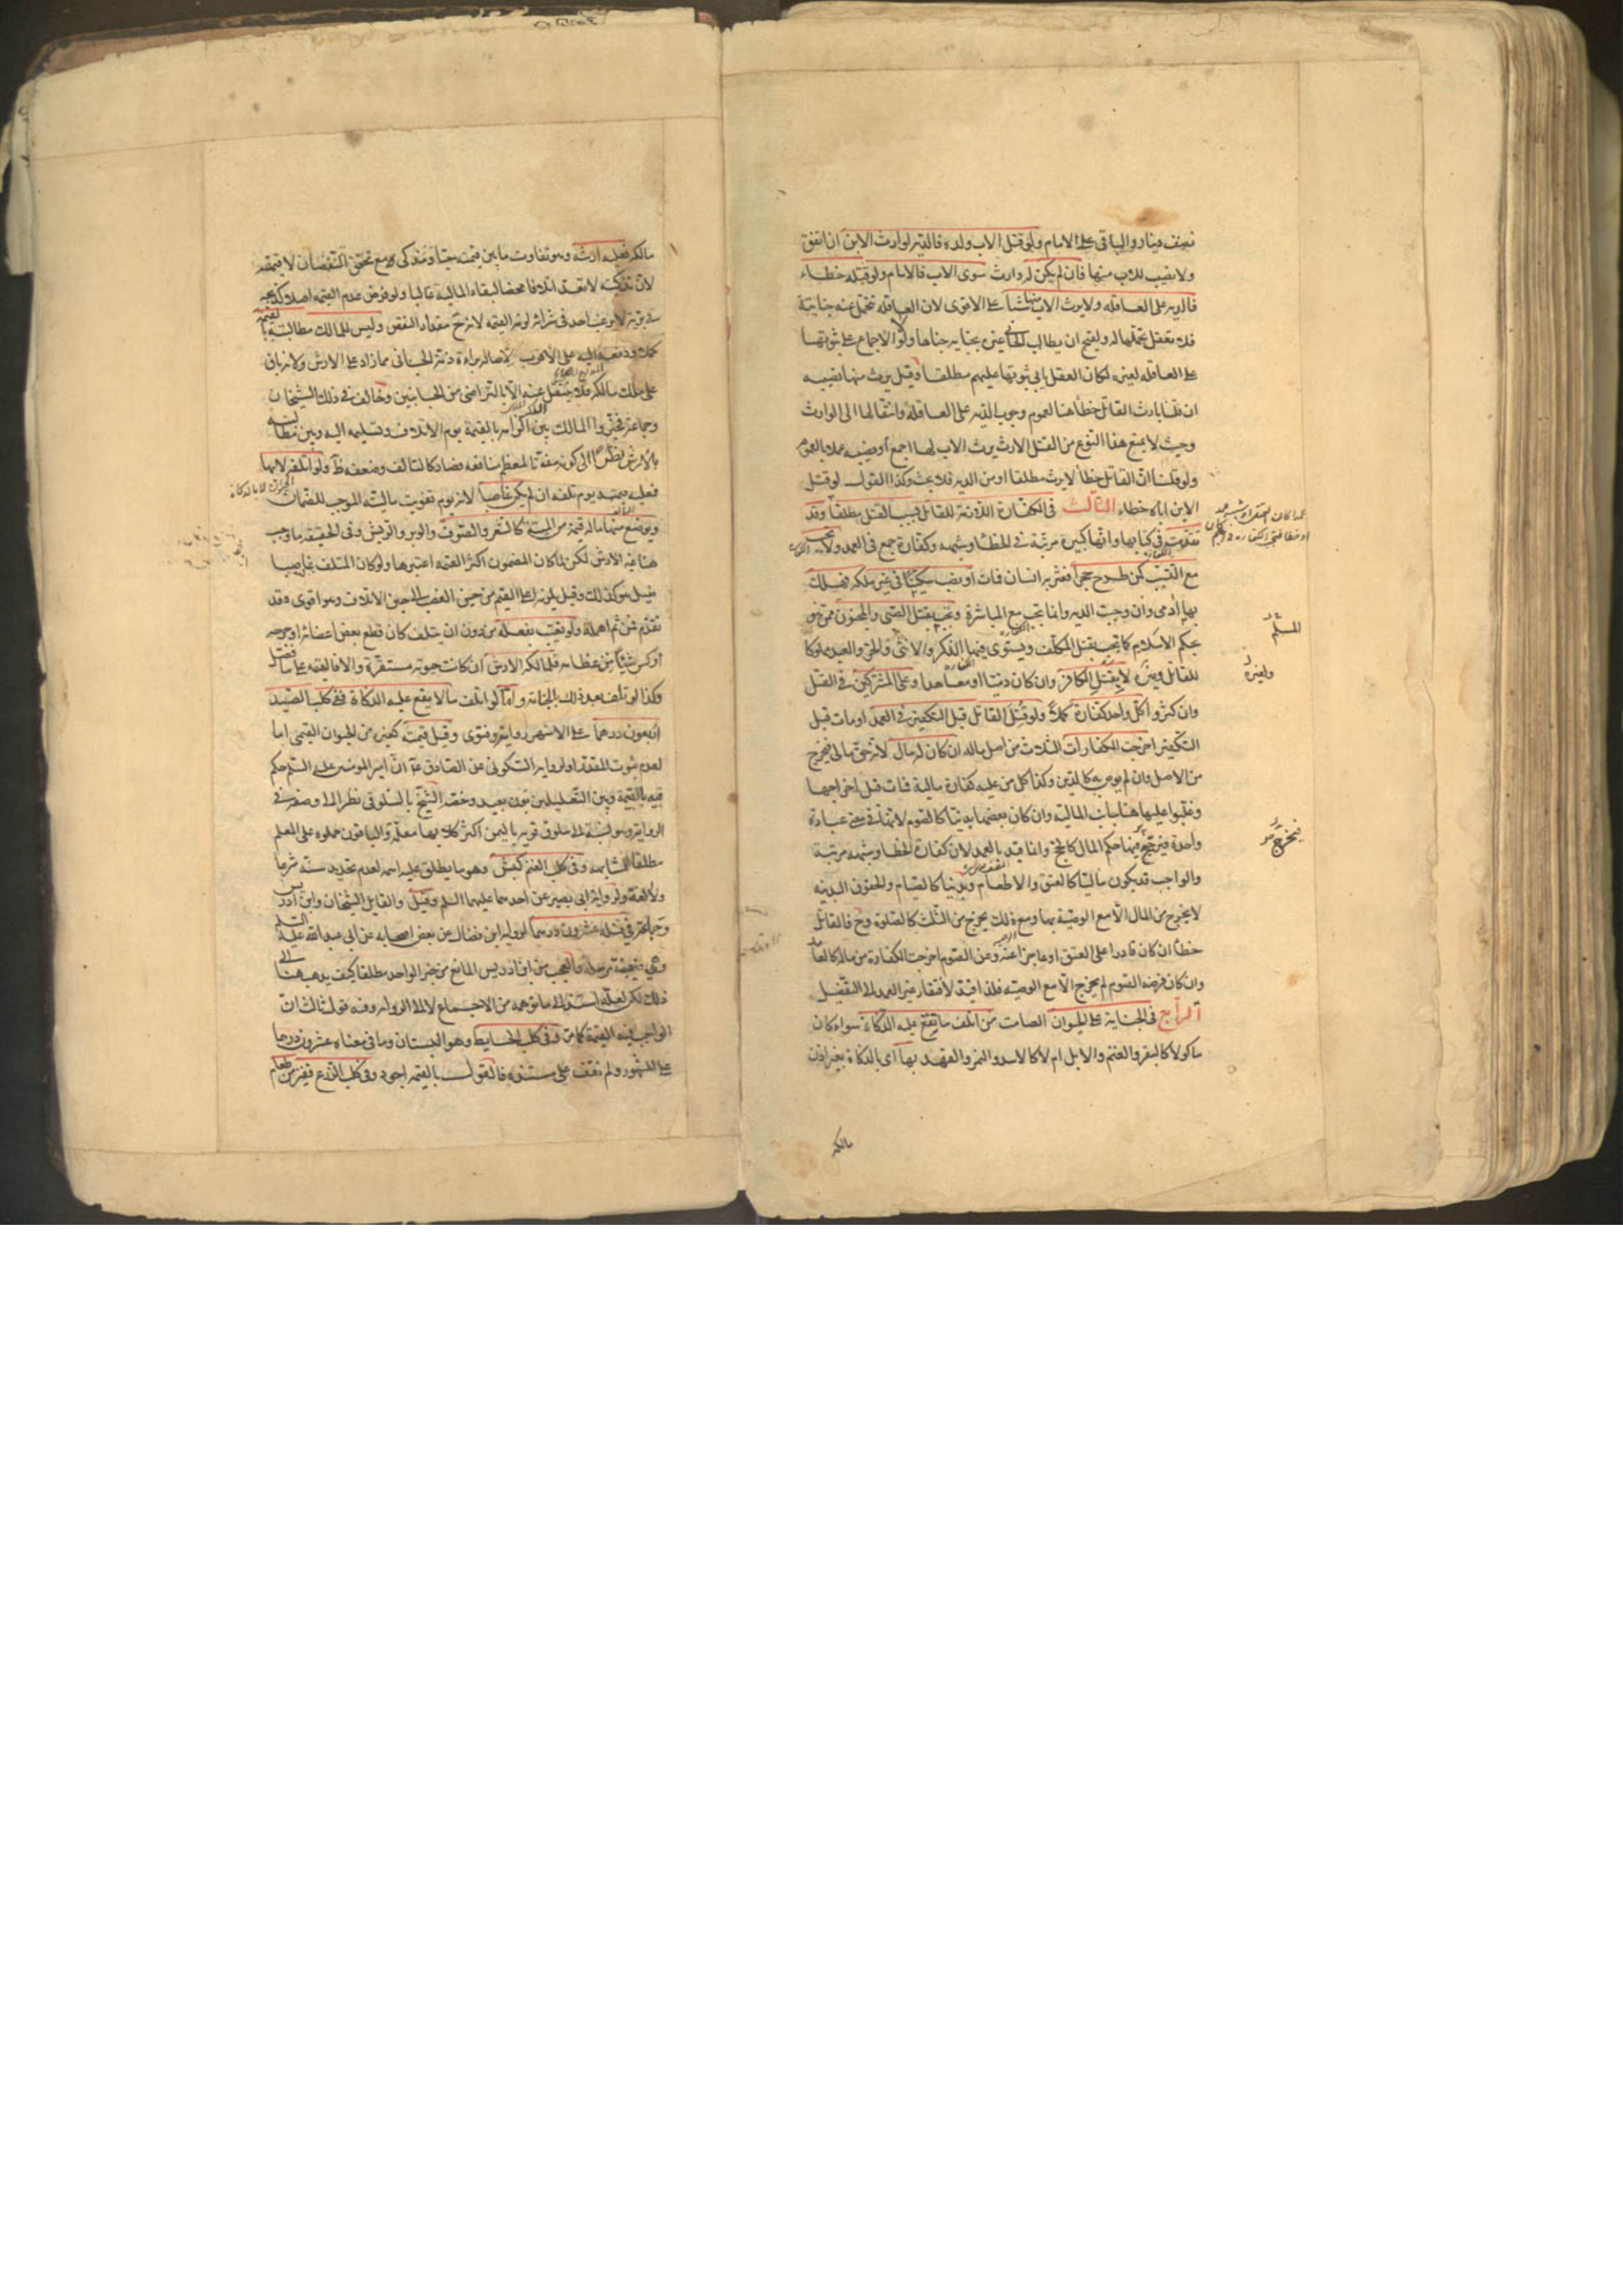 نصف دينار والباقى على الامام ولو قتل الاب ولده فالدية لوارث الابن ان اتفق
ولا نصيب للاب منها فان لم يكن له وارث سوى الاب فالامام ولو قتله خطاء
فالدية على العاقلة ولا يرث الاب منها شيئا على الاقوى لان العاقلة تتحمل عنه جناية
فلا يعقل تحملها له ولقبح ان يطالب الجانى غيره بجناية جناها ولولا الاجماع على ثبوتها
على العاقلة لغيره لكان العقل يابى ثبوتها عليهم مطلقا وقيل يرث منها نصيبه
ان قلنا بارث القاتل خطأ هنا لعموم وجوب الدية على العاقلة وانتقالها الى الوارث
وحيث لا يمنع هذا النوع من القتل الارث يرث الاب لها اجمع او نصيبه عملا بالعموم
ولو قلنا ان القاتل خطأ لا يرث مطلقا او من الدية فلا بحث وكذا القول لو قتل
الابن اباه خطاء الثالث فى الكفارة اللازمة للقاتل بسبب القتل مطلقا وقد
تقدمت فى كتابها وانها كبيرة مرتبة فى الخطأ وشبهه وكفارة جمع فى العمد ولا تجب
مع التسبيب كمن طرح حجرا فعثر به انسان فمات او نصب سكينا فى غير ملكه فهلك
بها ادمى وان وجبت الدية وانما تجب مع المباشرة وتجب بقتل الصبى والمجنون ممن هو
بحكم الاسلام كما تجب بقتل المكلف ويستوى فيها الذكر والانثى والحر والعبد مملوكا
للقاتل وغيره لا بقتل الكافر وان كان ذميا او معاهدا وعلى المشتركين فى القتل
وان كثروا كل واحد كفارة كملا ولو قتل القاتل قبل التكفير فى العمد او مات قبل
التكفير اخرجت الكفارات الثلاث من اصل ماله ان كان له مال لانه حق مالى فيخرج
من الاصل وان لم يوص به كالدين وكذا كل من عليه كفارة مالية فمات قبل اخراجها
وغلبوا عليها هنا جانب المالية وان كان بعضها بدنيا كالصوم لانها فى معنى عبادة
واحدة فيرجح فيها حكم المال كالحج وانما قيد بالعمد لان كفارة الخطا وشبهه مرتبة
والواجب قد يكون ماليا كالعتق والاطعام وبدنيا كالصيام والحقوق البدنيه
لا تخرج من المال الا مع الوصية بها ومع ذلك يخرج من الثلث كالصلوة وح فالقاتل
خطأ ان كان قادرا على العتق او عاجزا عنه وعن الصوم اخرجت الكفارة من ماله كالعامد
وان كان فرضه الصوم لم يخرج الا مع الوصيه فلذا قيد لافتقار غير العمد الى التفصيل
الرابع فى الجناية على الحيوان الصامت من اتلف ما تقع عليه الذكاة سواء كان
ماكولا كالبقر والغنم والابل ام لا كالاسد والنمر والفهد بها اى بالذكاة بغير اذن
مالكه
المسلم
ولغيره
فيخرج
مالكه فعليه ارشه وهو تفاوت ما بين قيمته حيا ومذكى مع تحقق النقصان لا قيمته
لان تذكيته لا تعد اتلافا محضا لبقاء المالية غالبا ولو فرض عدم القيمة اصلا كذبحه
فى برية لا يرغب احد فى شرائه لزمه القيمة لانه ح مقدار النقص وليس للمالك مطالبته بالقيمة
كملا ودفعه اليه على الاقرب لاصالة براءة ذمة الجانى مما زاد على الارش ولانه باق
على ملك مالكه فلا ينتقل عنه الا بالتراضى من الجانبين وخالف فى ذلك الشيخان
وجماعة فخيروا المالك بين الزامه بالقيمة يوم الاتلاف وتسليمه اليه وبين مطالبته
بالارش نظرا الى كونه مفوتا لمعظم منافعه فصار كالتالف وضعفه ظ ولو اتلفه لا بها
فعليه قيمته يوم تلفه ان لم يكن غاصبا لانه يوم تفويت ماليته الموجب للضمان
ويوضع منها ما له قيمة من الميتة كالشعر والصوف والوبر والريش وفى الحقيقة ما وجب
هنا غير الارش لكن لما كان المضمون اكثر القيمة اعتبرها ولو كان المتلف غاصبا
قيل هو كذلك وقيل يلزمه اعلى القيم من حين الغصب الى حين الاتلاف وهو اقوى وقد
تقدم ثم اهمله ولو تعيب بفعله من دون ان يتلف كان قطع بعض اعضائه او جرحه
او كسر شيئا من عظامه فلمالكه الارش ان كانت حيوته مستقرة والا فالقيمة على ما فصل
وكذا لو تلف بعد ذلك بالجناية واما لو اتلف ما لا يقع عليه الذكاة ففى كلب الصيد
اربعون درهما على الاشهر رواية وفتوى وقيل قيمته كغيره من الحيوان القيمى اما
لعدم ثبوت المقدر او لرواية السكونى عن الصادق ع ان امير المؤمنين عليه السلام حكم
فيه بالقيمة وبين التعليلين بون بعيد وخصه الشيخ بالسلوقى نظرا الى وصفه فى
الرواية وهو نسبة الى سلوق قرية باليمن اكثر كلابها معلمة والباقون حملوه على المعلم
مطلقا للمشابهة وفى كلب الغنم كبش وهو ما يطلق عليه اسمه لعدم تحديد سنه شرعا
ولا لغة ولرواية ابى بصير عن احدهما عليهما السلم وقيل والقايل الشيخان وابن ادريس
وجماعة فى قتله عشرون درهما لرواية ابن فضال عن بعض اصحابه عن ابى عبد الله عليه السلم
وهى ضعيفة مرسلة والعجب من ابن ادريس المانع من خبر الواحد مطلقا كيف يذهب هنا الى
ذلك لكن لعله استند الى ما توهمه من الاجماع لا الى الرواية وفيه قول ثالث ان
الواجب فيه القيمة كما مر وفى كلب الحايط وهو البستان وما فى معناه عشرون درهما
على المشهور ولم نقف على مستنده فالقول بالقيمة اجود وفى كلب الزرع قفيز من طعام